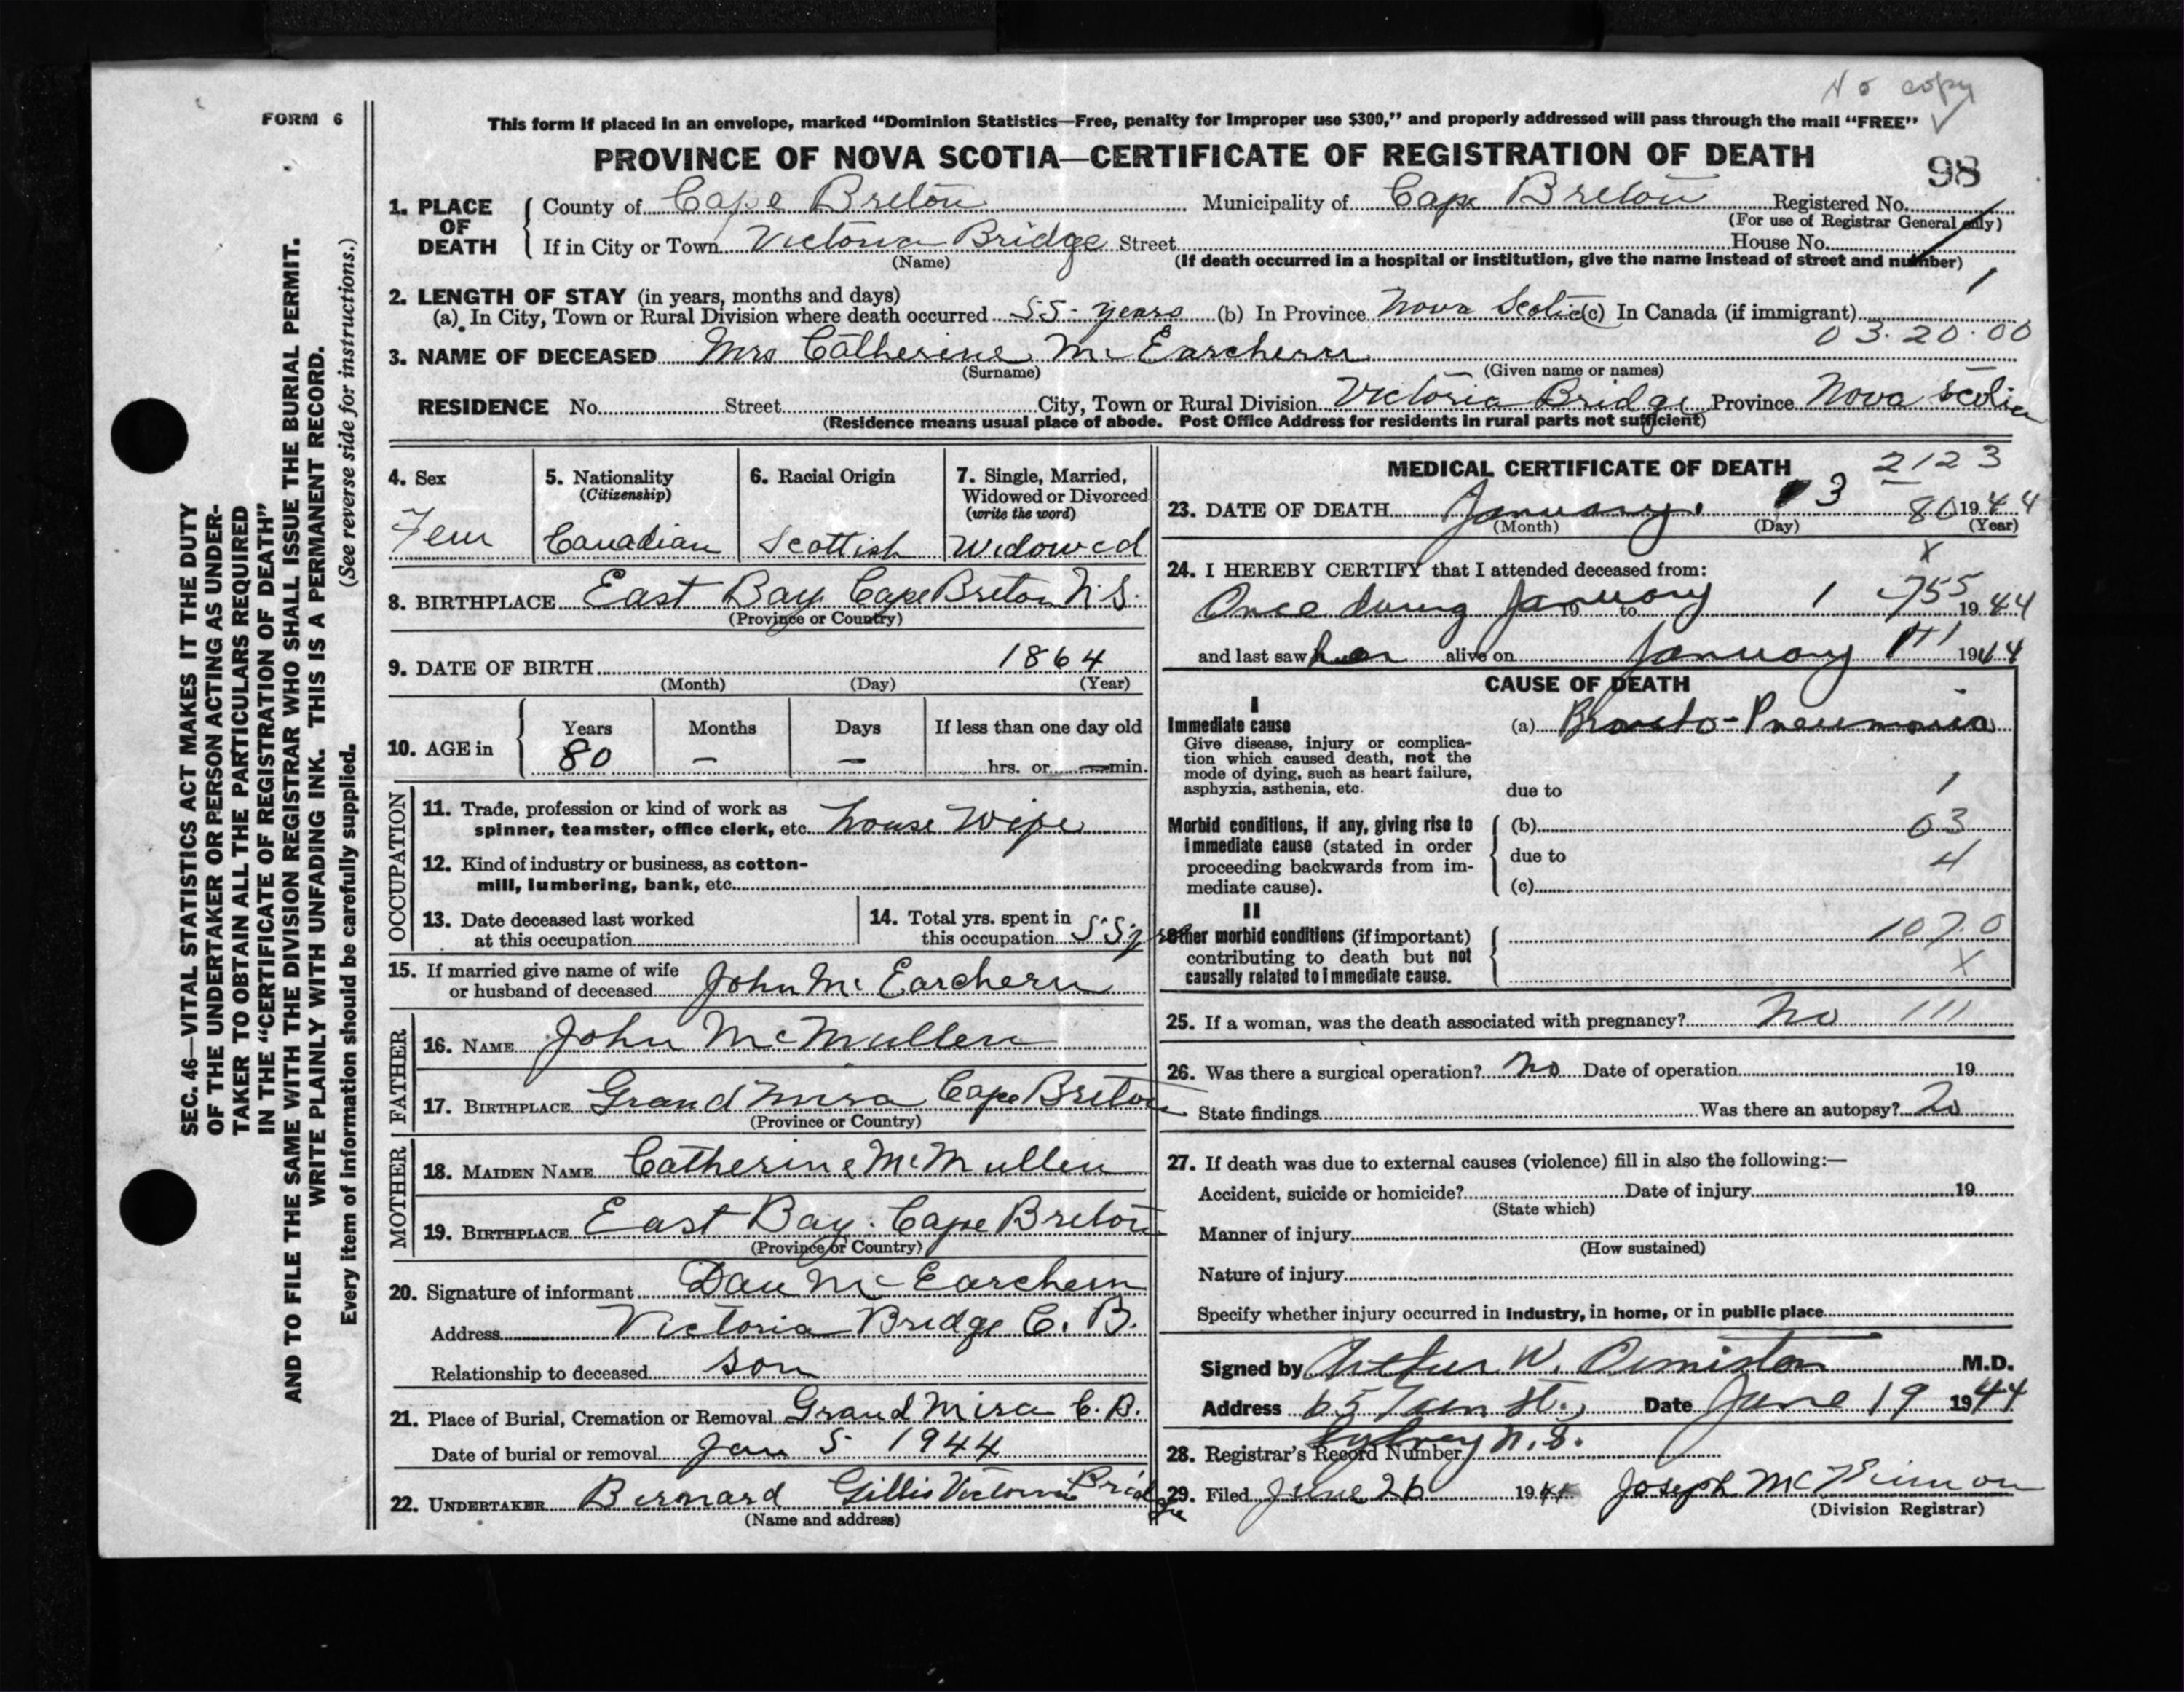 No copy
FORM 6
This form if placed in an envelope, marked “Dominion Statistics—Free, penalty for improper use $300,” and properly addressed will pass through the mail “FREE”
PROVINCE OF NOVA SCOTIA—CERTIFICATE OF REGISTRATION OF DEATH
98
1. PLACE OF DEATH
County of Cape Breton Municipality of Cape Breton Registered No.
(For use of Registrar General only)
If in City or Town Victoria Bridge Street House No.
(Name) (If death occurred in a hospital or institution, give the name instead of street and number)
1
2. LENGTH OF STAY (in years, months and days)
(a) In City, Town or Rural Division where death occurred 55 years (b) In Province Nova Scotia (c) In Canada (if immigrant)
03.20.00
3. NAME OF DECEASED Mrs Catherine Mc Earchern
(Surname) (Given name or names)
RESIDENCE No. Street City, Town or Rural Division Victoria Bridge Province Nova Scotia
(Residence means usual place of abode. Post Office Address for residents in rural parts not sufficient)
4. Sex
Fem
5. Nationality
(Citizenship)
Canadian
6. Racial Origin
Scottish
7. Single, Married,
Widowed or Divorced
(write the word)
Widowed
8. BIRTHPLACE East Bay Cape Breton N.S.
(Province or Country)
9. DATE OF BIRTH 1864
(Month) (Day) (Year)
10. AGE in Years Months Days If less than one day old
80 — — hrs. or — min.
OCCUPATION
11. Trade, profession or kind of work as
spinner, teamster, office clerk, etc. house wife
12. Kind of industry or business, as cotton-
mill, lumbering, bank, etc.
13. Date deceased last worked
at this occupation
14. Total yrs. spent in
this occupation 55 yrs
15. If married give name of wife
or husband of deceased John Mc Earchern
FATHER
16. NAME John McMullen
17. BIRTHPLACE Grand Mira Cape Breton
(Province or Country)
MOTHER
18. MAIDEN NAME Catherine McMullin
19. BIRTHPLACE East Bay. Cape Breton
(Province or Country)
20. Signature of informant Dan Mc Earchern
Address Victoria Bridge C. B.
Relationship to deceased son
21. Place of Burial, Cremation or Removal Grand Mira C. B.
Date of burial or removal Jan 5 1944
22. UNDERTAKER Bernard Gillis Victoria Bridge
(Name and address)
MEDICAL CERTIFICATE OF DEATH 2123
23. DATE OF DEATH January 3 80 1944
(Month) (Day) (Year)
x
24. I HEREBY CERTIFY that I attended deceased from:
Once during January 19 to 1 755 1944
and last saw her alive on January 1st 1944
CAUSE OF DEATH
I
Immediate cause
Give disease, injury or complica-
tion which caused death, not the
mode of dying, such as heart failure,
asphyxia, asthenia, etc.
(a) Broncho-Pneumonia
due to 1
Morbid conditions, if any, giving rise to
immediate cause (stated in order
proceeding backwards from im-
mediate cause).
(b) 63
due to 4
(c)
II
Other morbid conditions (if important)
contributing to death but not
causally related to immediate cause.
107.0
X
25. If a woman, was the death associated with pregnancy? No 111
26. Was there a surgical operation? No Date of operation 19
State findings Was there an autopsy?
27. If death was due to external causes (violence) fill in also the following:—
Accident, suicide or homicide? Date of injury 19
(State which)
Manner of injury
(How sustained)
Nature of injury
Specify whether injury occurred in industry, in home, or in public place
Signed by Arthur W. Ormiston M.D.
Address 65 St., Date June 19 1944
Sydney N.S.
28. Registrar's Record Number
29. Filed June 26 1944 Joseph McKinnon
(Division Registrar)
SEC. 46—VITAL STATISTICS ACT MAKES IT THE DUTY
OF THE UNDERTAKER OR PERSON ACTING AS UNDER-
TAKER TO OBTAIN ALL THE PARTICULARS REQUIRED
IN THE “CERTIFICATE OF REGISTRATION OF DEATH”
AND TO FILE THE SAME WITH THE DIVISION REGISTRAR WHO SHALL ISSUE THE BURIAL PERMIT.
WRITE PLAINLY WITH UNFADING INK. THIS IS A PERMANENT RECORD.
Every item of information should be carefully supplied. (See reverse side for instructions.)